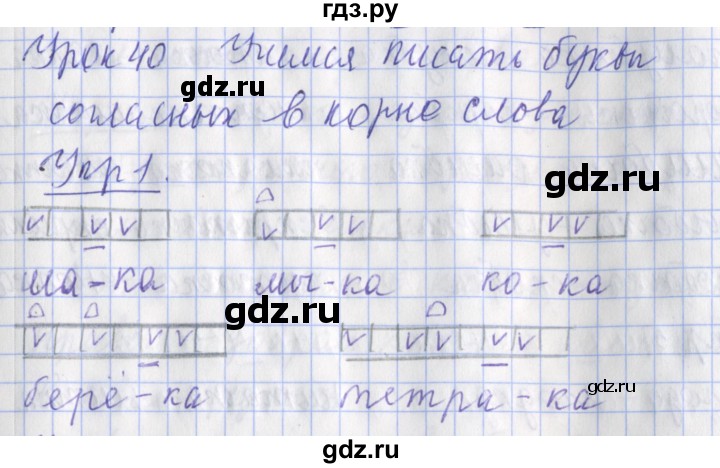 гдз.ру
Урок 40 Учимся писать буквы
gdz.ru
согласных в корне слова
Упр 1.
gdz.ru
v v v v v v v v
ша-ка мы-ка ко-ка
gdz.ru
v v v v v v v v v
берё-ка тетра-ка
gdz.ru
gdz.ru